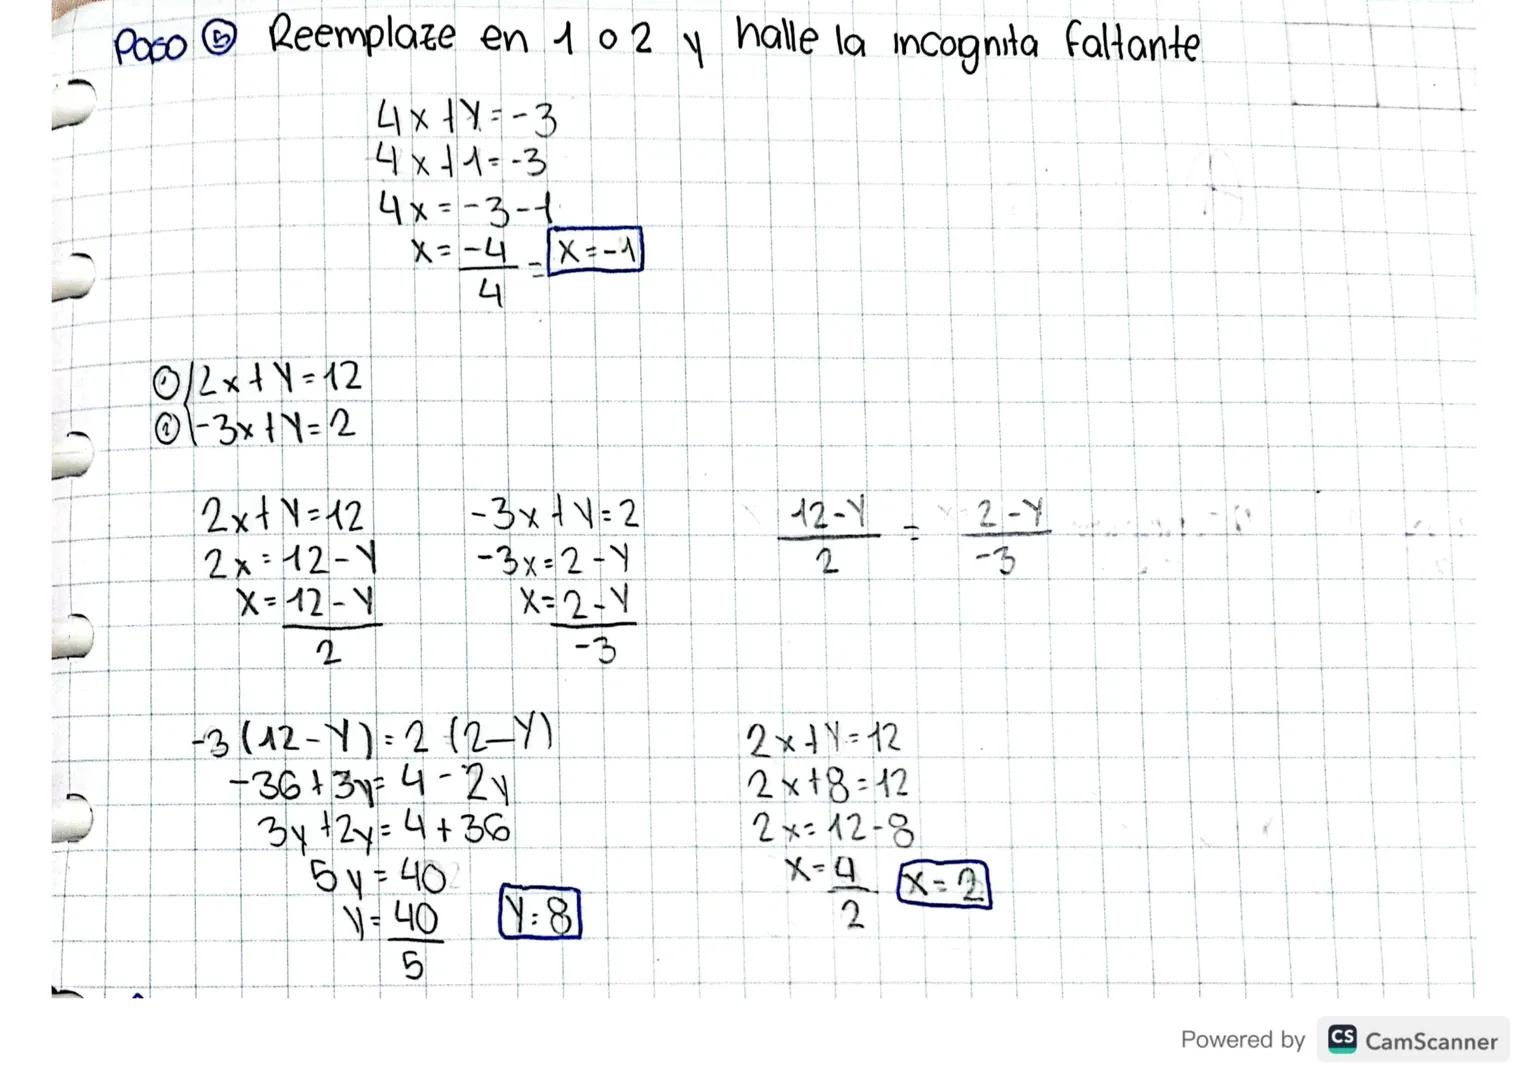 Paso ⑤ Reemplaze en 1 o 2 y halle la incognita faltante
4x+Y=-3
4x+1=-3
4x=-3-1
x=-4/4 = x=-1
① 2x+Y=12
② -3x+Y=2
2x+Y=12
2x=12-Y
x=12-Y/2
-3x+Y=2
-3x=2-Y
x=2-Y/-3
12-Y/2 = 2-Y/-3
-3(12-Y)=2(2-Y)
-36+3y=4-2y
3y+2y=4+36
5y=40
y=40/5 Y=8
2x+Y=12
2x+8=12
2x=12-8
x=4/2 x=2
Powered by CS CamScanner